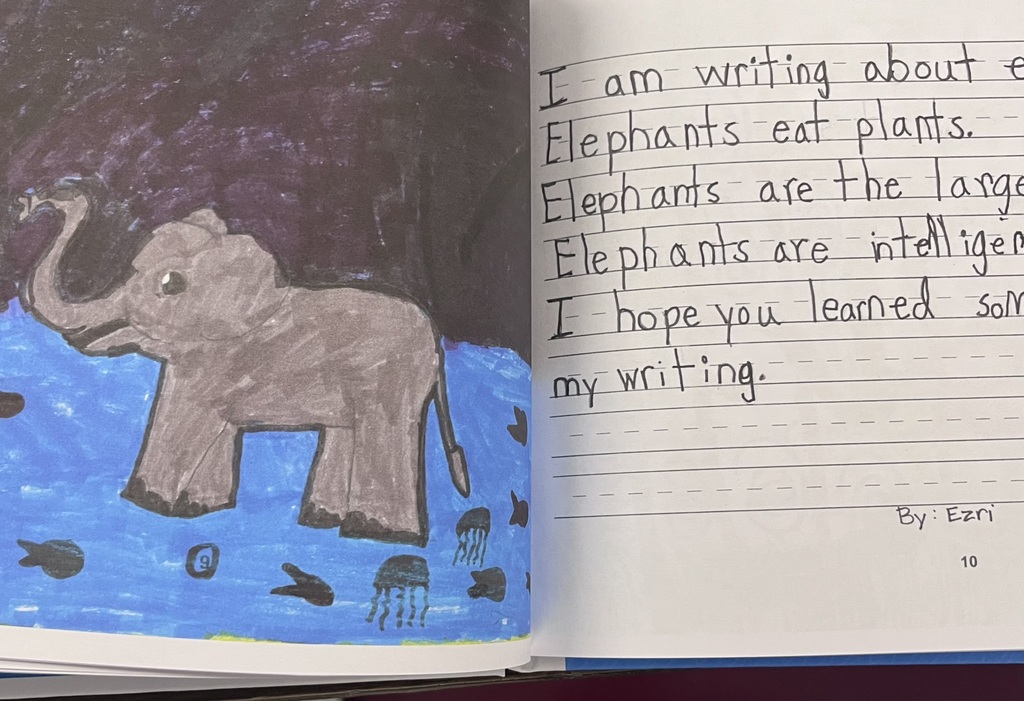 9
I am writing about e
Elephants eat plants.
Elephants are the large
Elephants are intelligen
I hope you learned som
my writing.
By: Ezri
10